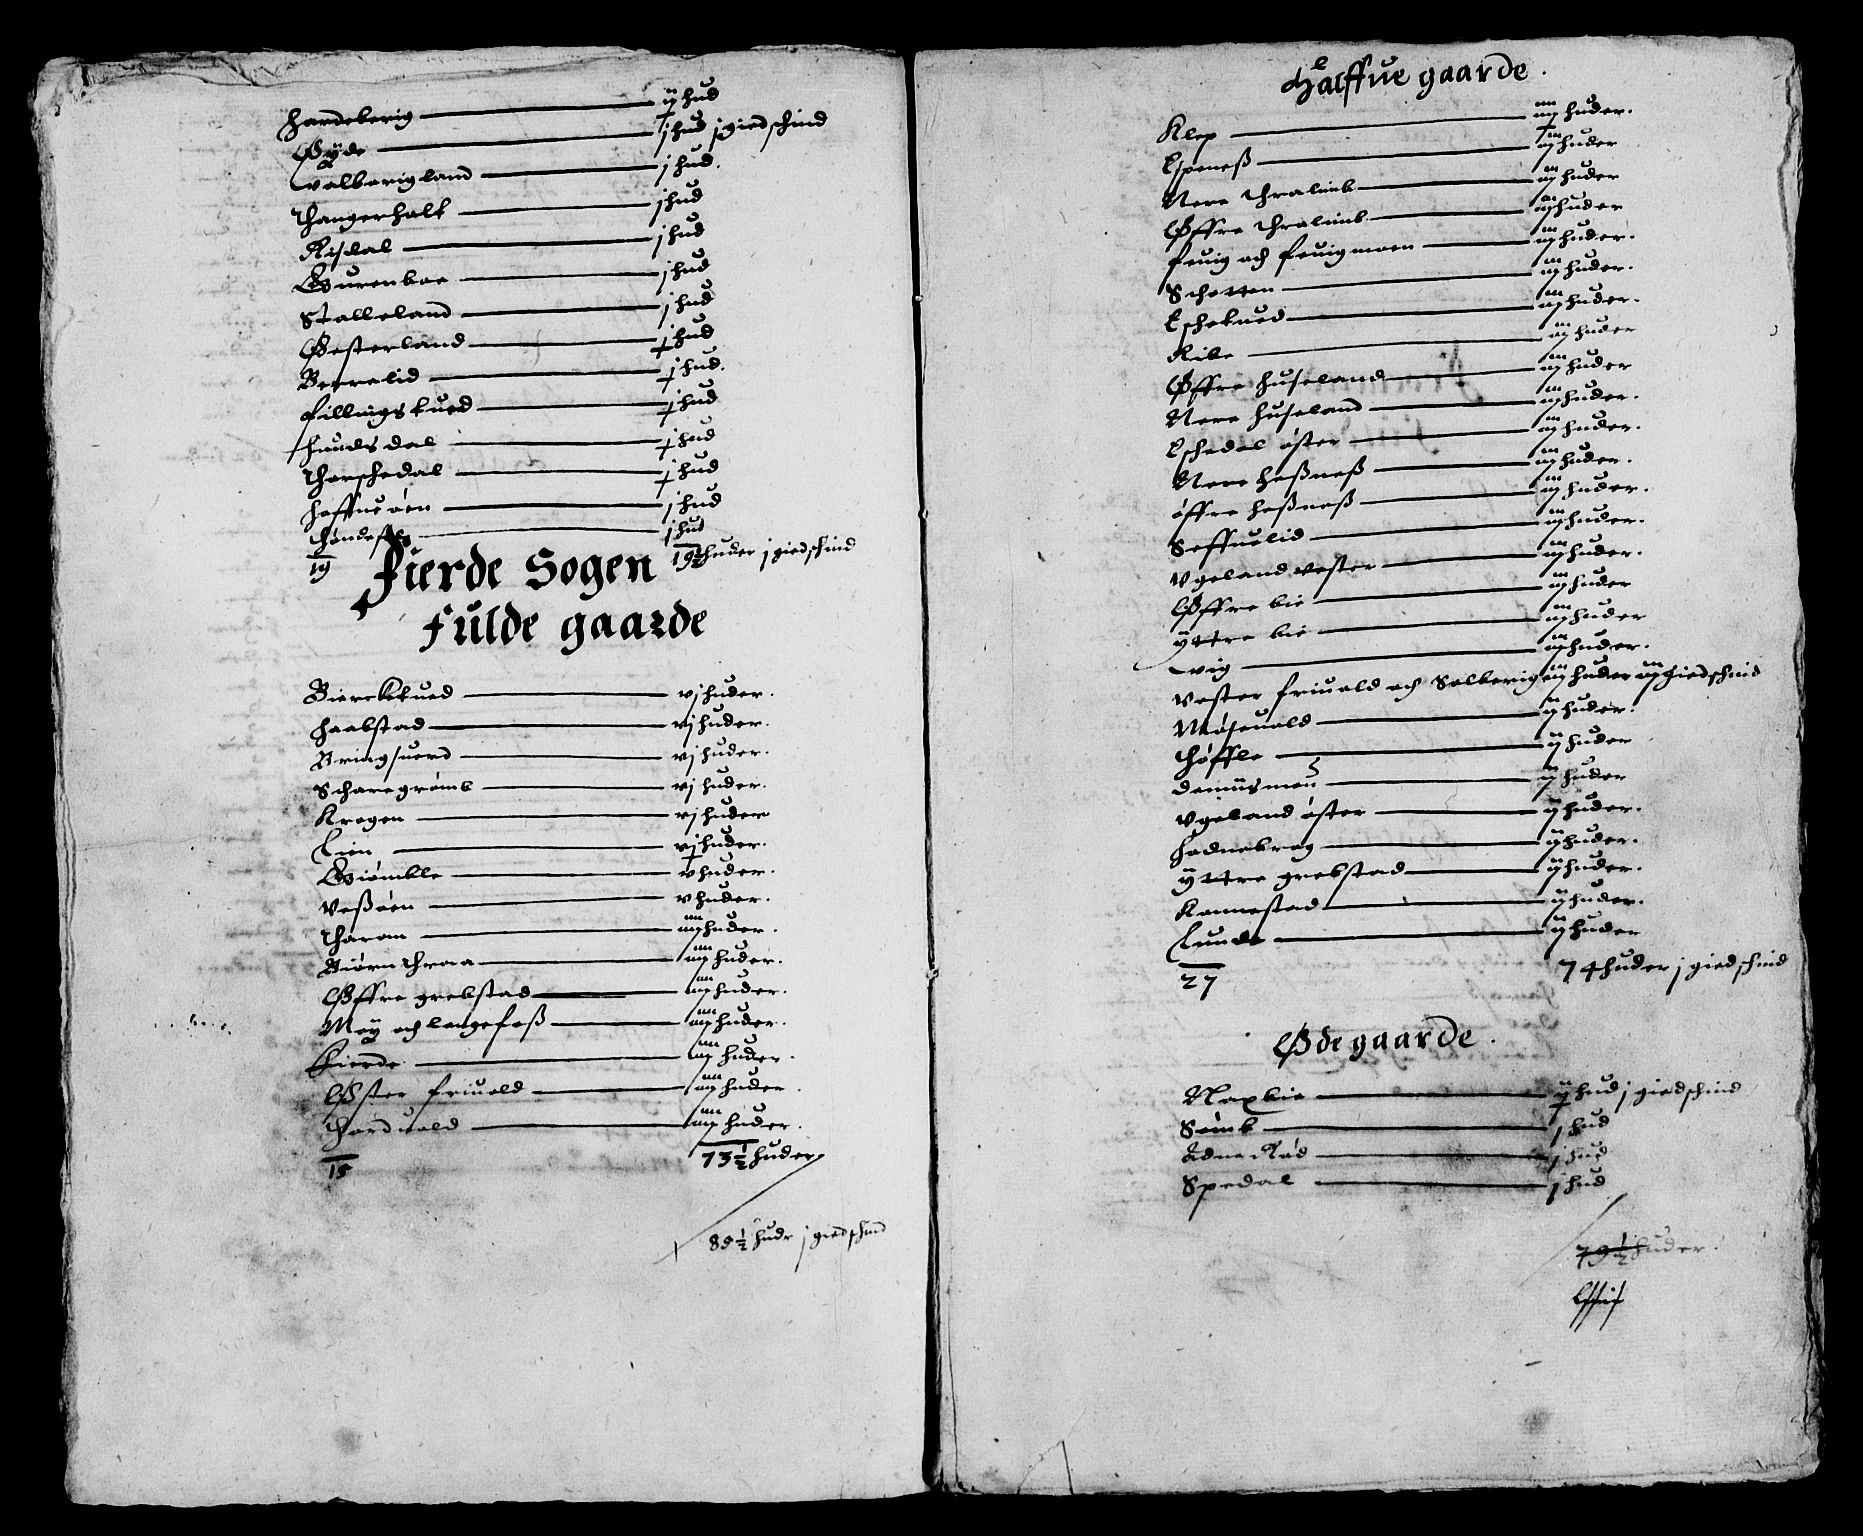 Hardeberig ij hud
Øÿde j hud j giedschind
valberigland j hud.
Thangerholt j hud
Risdal j hud
Burenboe j hud
Stalleland j hud
Østerland j hud
Berrelid j hud.
Fillingskued j hud
Hundsdal j hud
Thorschedal j hud
Hoffusöen j hud
j hud
19 19½ huder j giedschind
Fierde Sogen
Fulde gaarde
Bierckkued vj huder.
Haabstad vj huder.
Bringsuerd vj huder.
Scharegrömb vj huder.
Krogen vj huder
Lien vj huder.
Giömble v huder.
Veßöen v huder.
Tharom iiij huder.
Biörnthraa iiij huder.
Øffre grebstad iiij huder.
Moÿ och langefoß iiij huder.
Fierde iiij huder.
Øster friuold iiij huder.
Thorduold iiij huder.
15 73½ huder
85½ hudr j giedschind
Halffue gaarde.
Klep iiij huder.
Espeneß iij huder
Nere Thralimb iij huder
Øffre Thralimb iij huder
feuig och feuigmoen iij huder.
Schotten iij huder.
Eschekued iij huder.
Kile iij huder
Øffre Huseland iij huder
Nere Huseland iij huder.
Eschedal öster iij huder.
Nere Heßneß iij huder.
öffre Heßneß iij huder.
Seffuelid iij huder.
Vgeland vester iij huder.
Øffre bie iij huder
ÿttre bie iij huder
vig iij huder.
Vester friuold och Solberig iij huder iij giedschind
Möseuold ij huder.
Höffle ij huder
Dömmsmoen ij huder
Vgeland öster ij huder.
Hodnebrog ij huder.
ÿttre grebstad ij huder.
Konnestad ij huder.
Lunde ij huder
27 74 huder j giedschind
Øde gaarde.
Naxbie ij hud j giedschind
Sömb j hud
Adne Röd j hud
Spedal j hud
79½ huder.